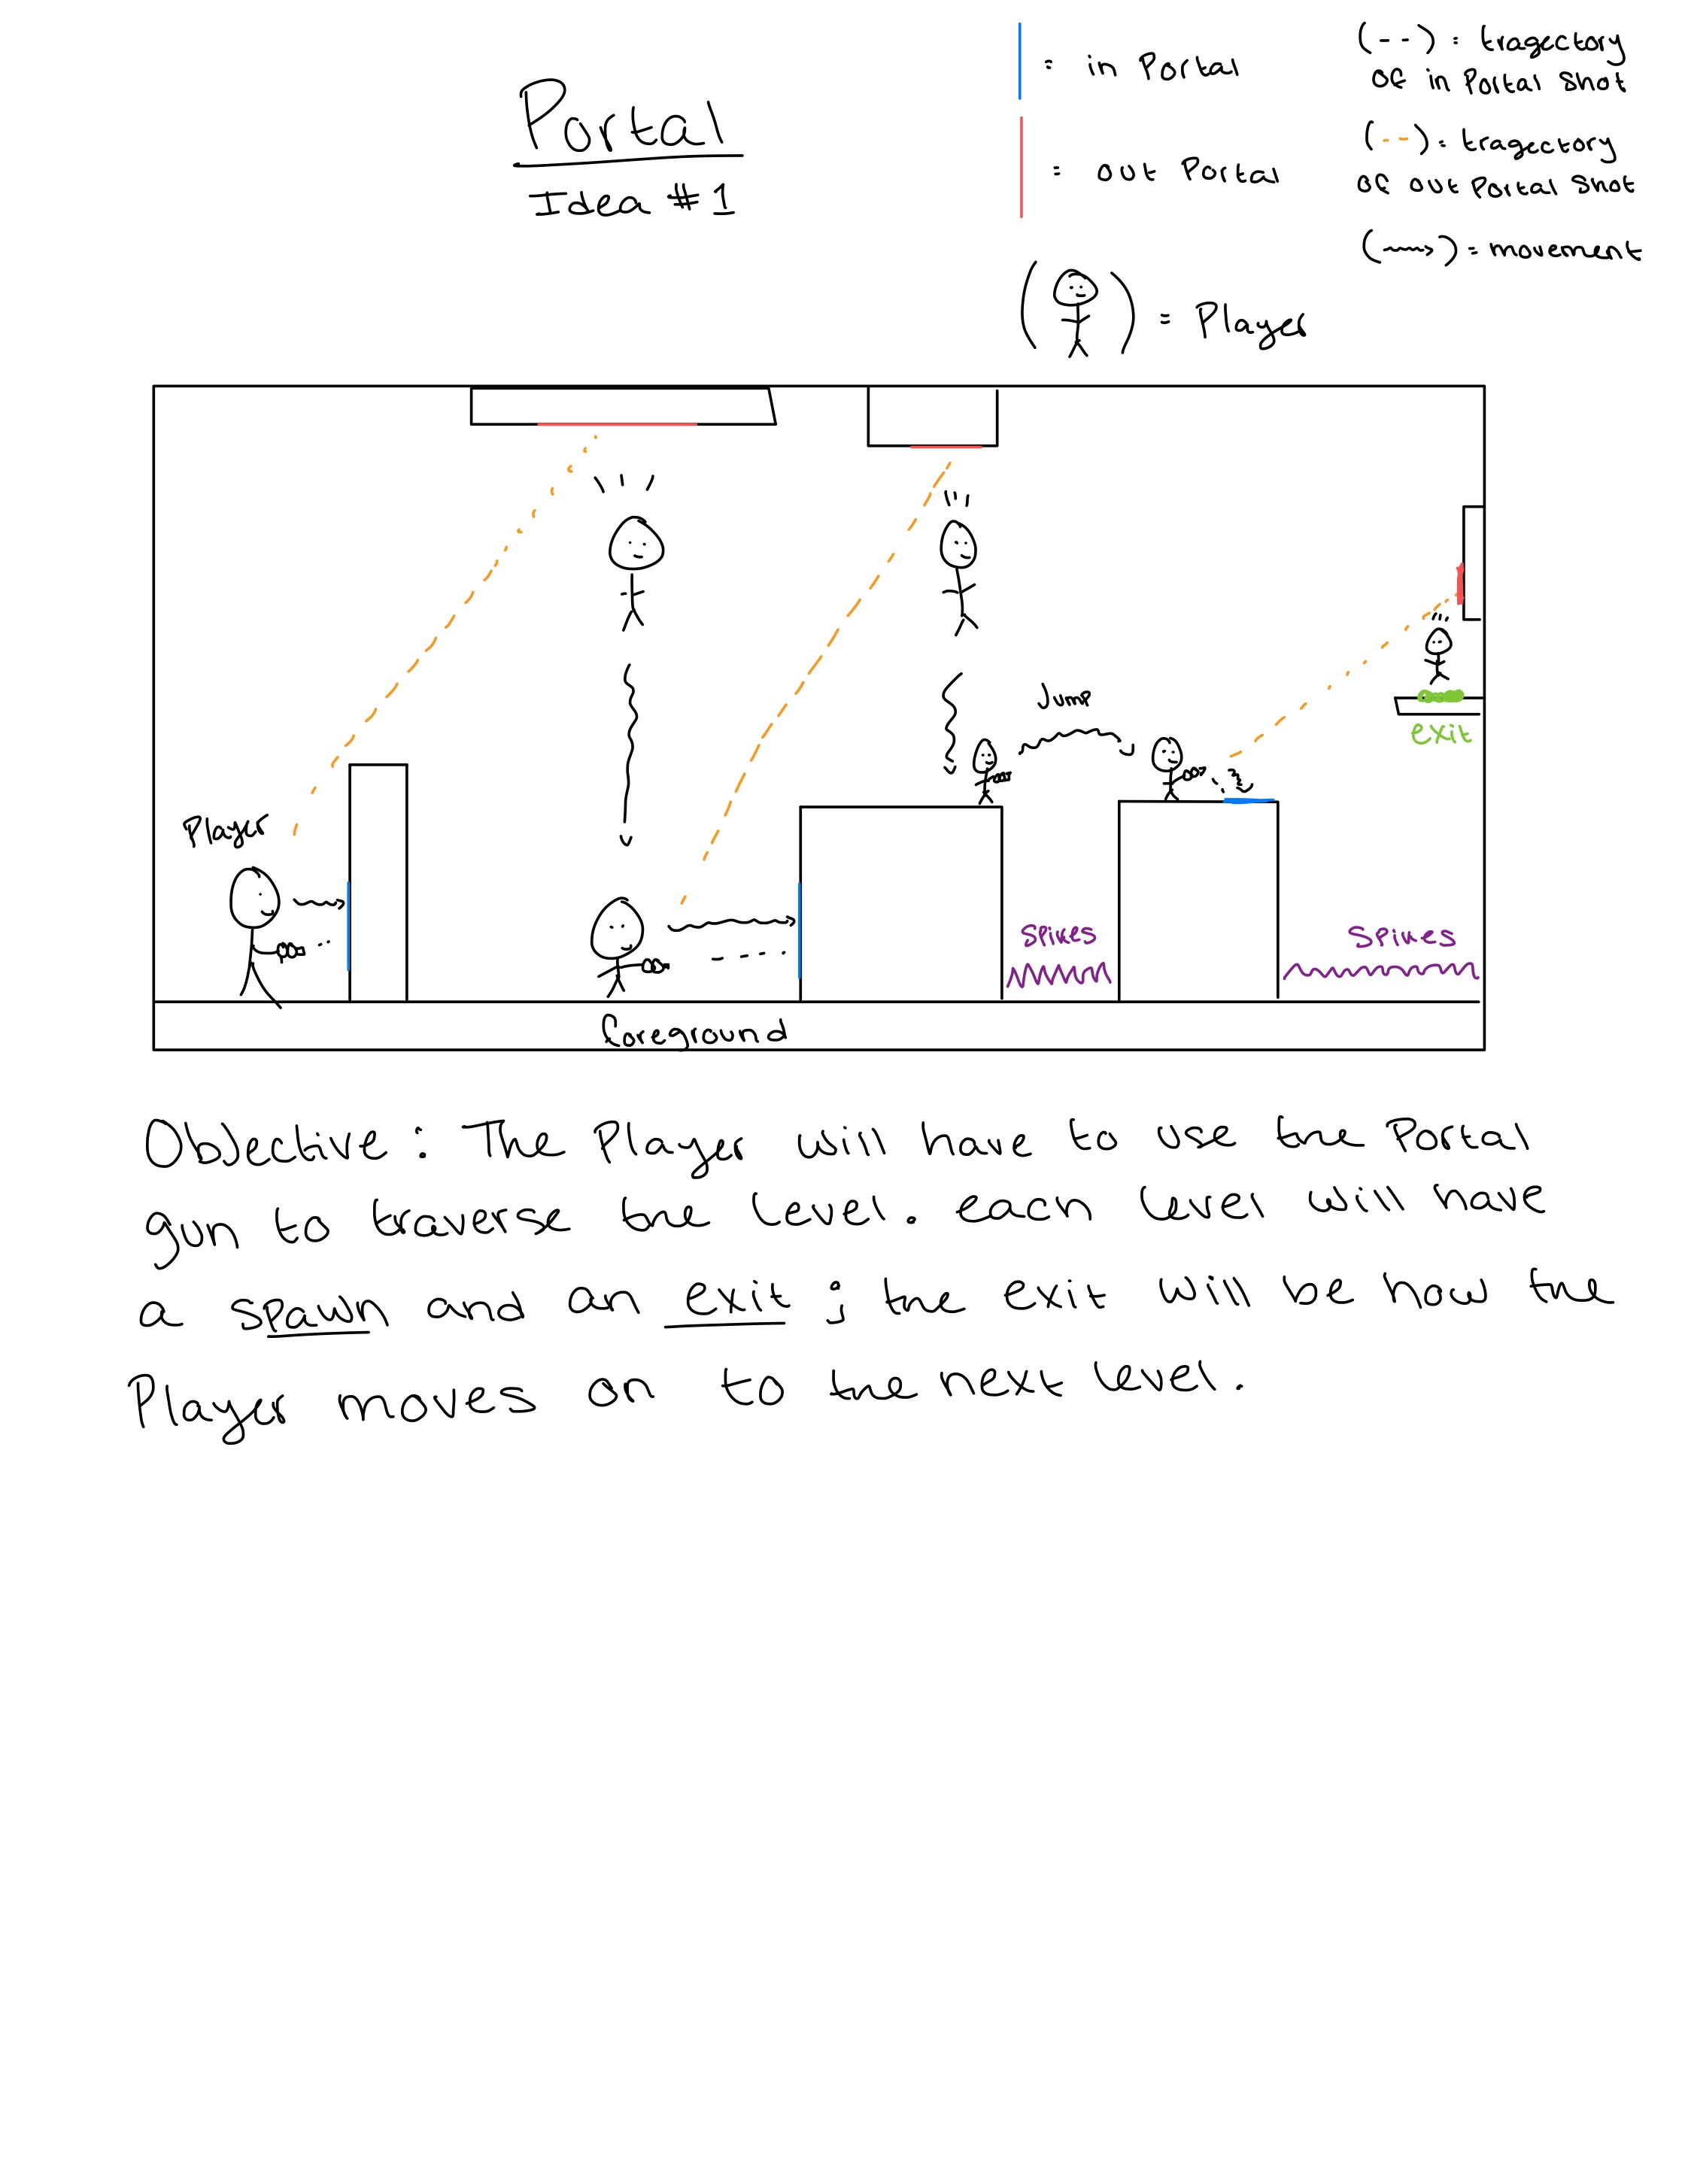 Portal
Idea #1
= in Portal
= out Portal
(--) = tragectory
of in Portal Shot
(--) = tragectory
of out Portal Shot
(⟿) = movement
( ) = Player
Player
Jump
exit
Spikes
Spikes
Foreground
Objective: The Player will have to use the Portal
gun to traverse the level. each level will have
a spawn and an exit ; the exit will be how the
Player moves on to the next level.